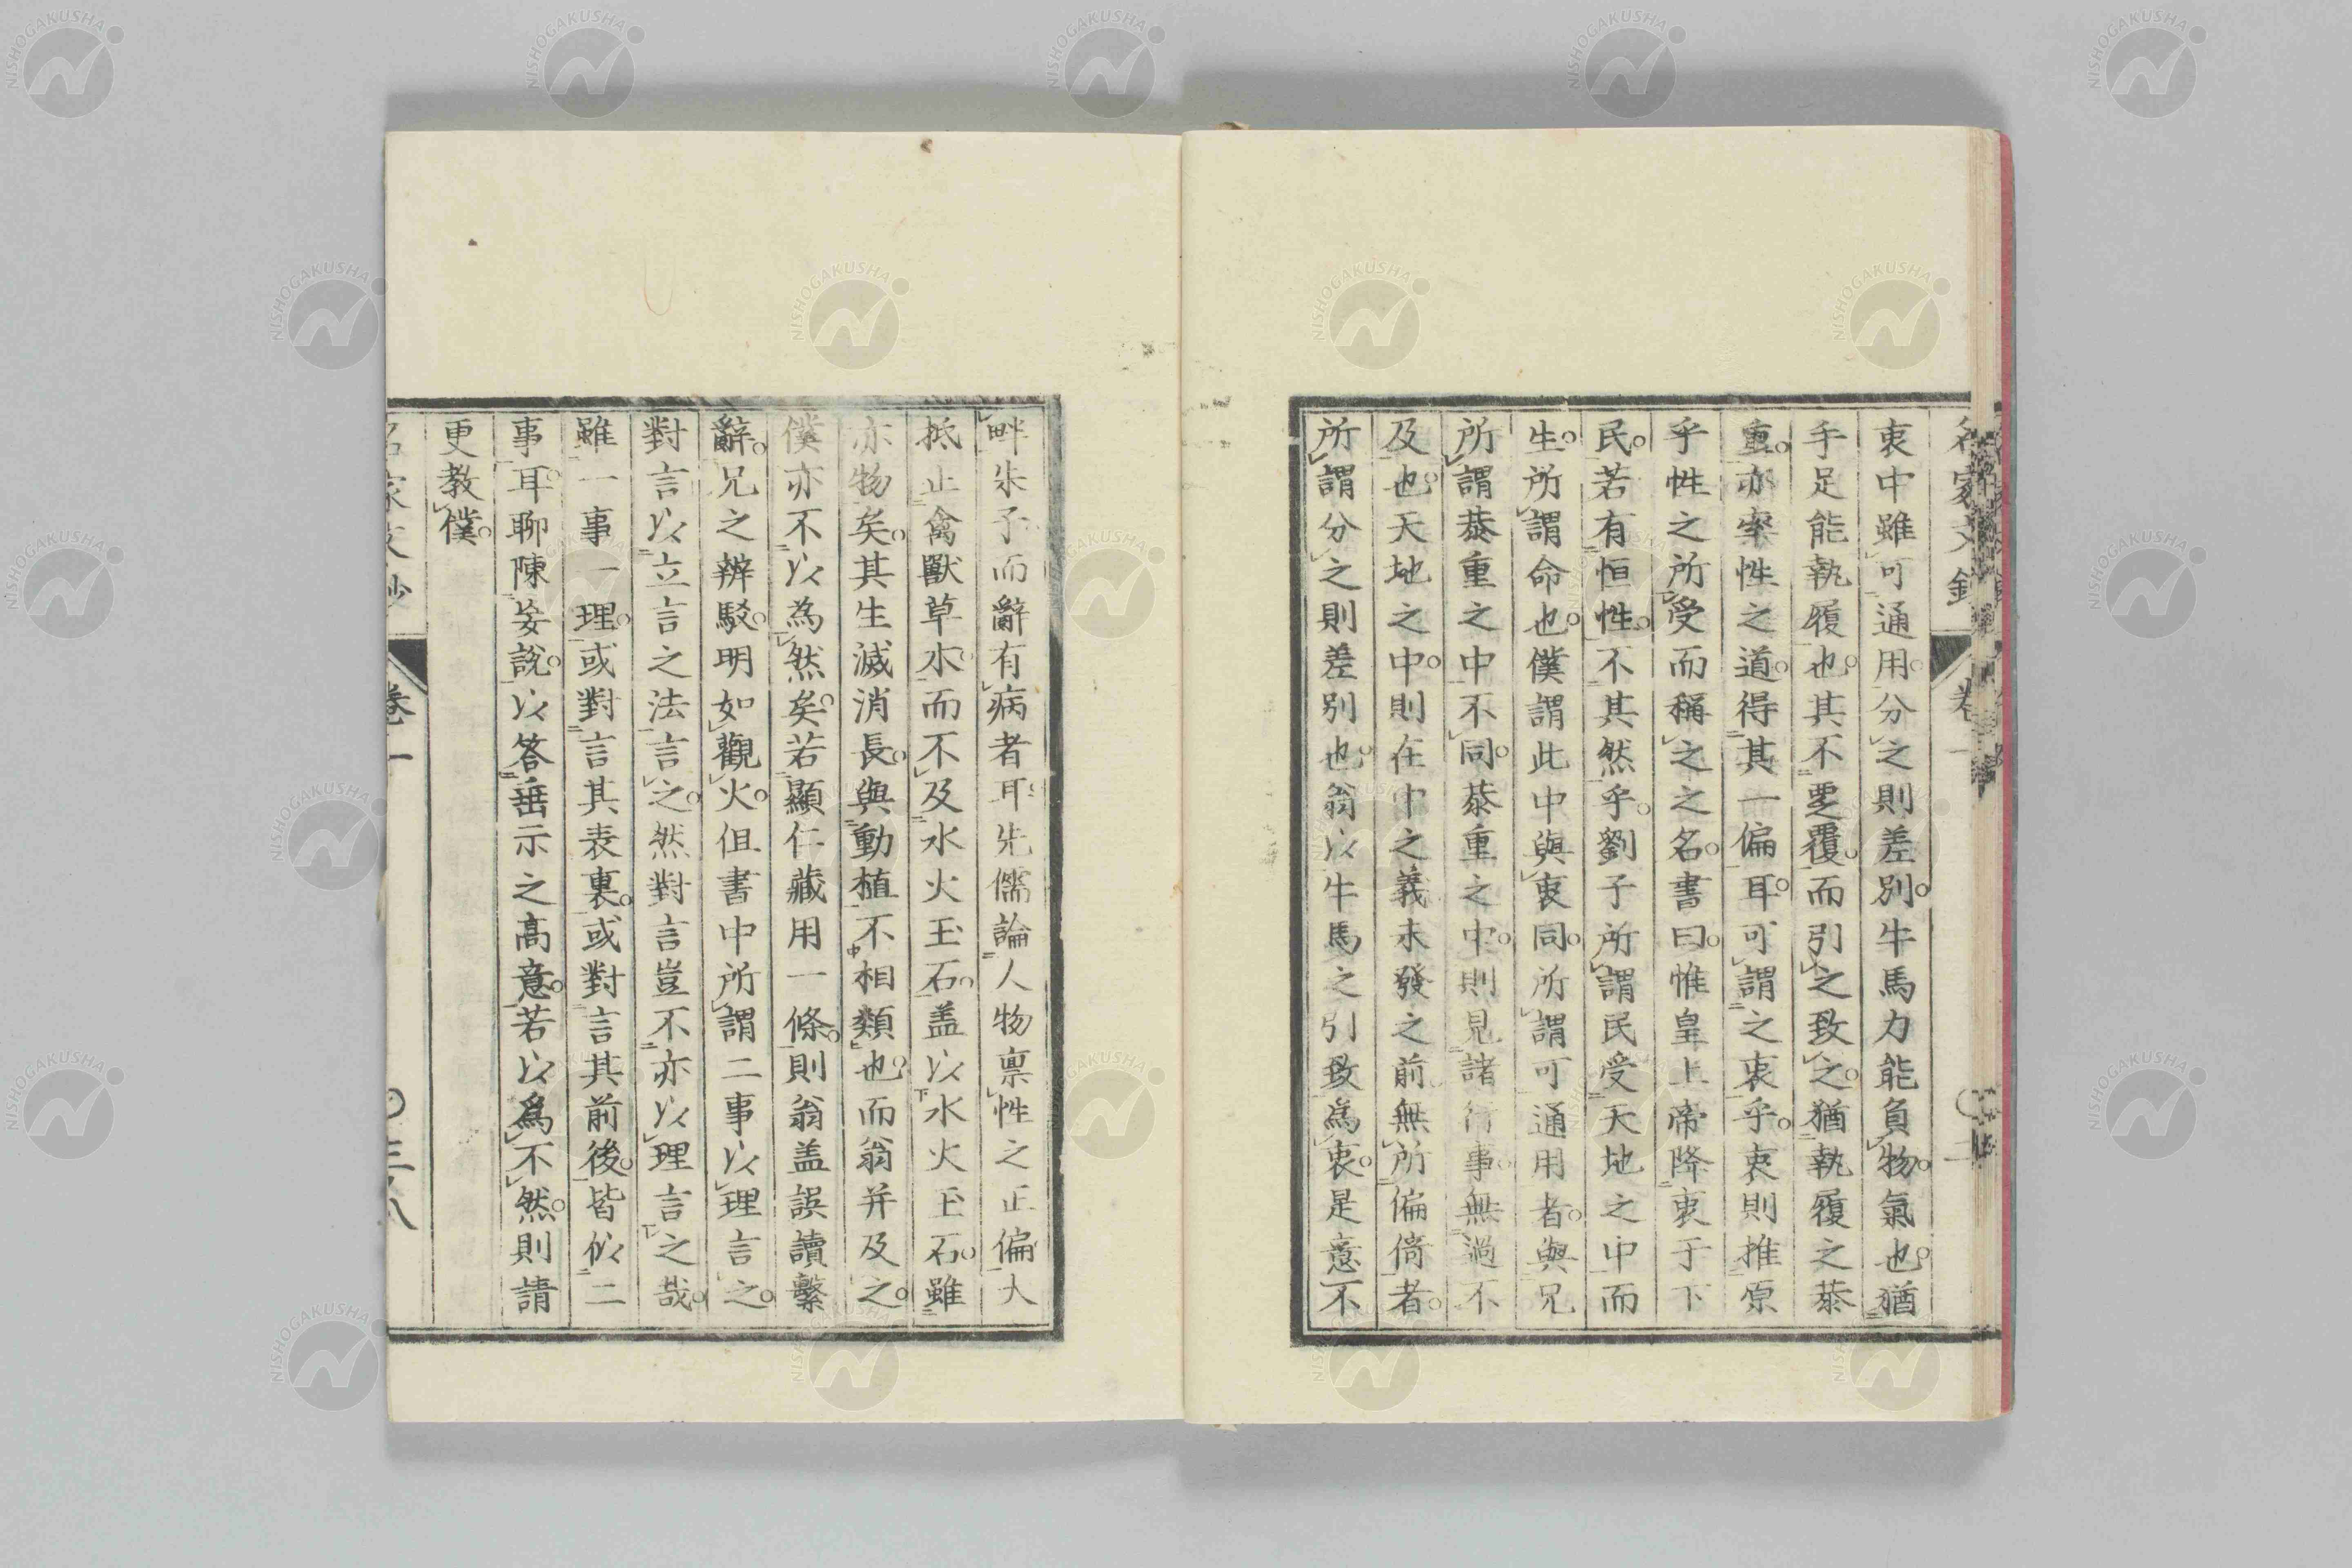 衷中雖可通用分之則差別牛馬力能負物氣也猶
手足能執履也其不覂覆而引之致之猶執履之恭
重亦率性之道得其一偏耳可謂之衷乎衷則推原
乎性之所受而稱之之名書曰惟皇上帝降衷于下
民若有恒性不其然乎劉子所謂民受天地之中而
生所謂命也僕謂此中與衷同所謂可通用者與兄
所謂恭重之中不同恭重之中則見諸行事無過不
及也天地之中則在中之義未發之前無所偏倚者
所謂分之則差別也翁以牛馬之引致為衷是意不
畔朱子而辭有病者耳先儒論人物禀性之正偏大
抵止禽獸草木而不及水火玉石盖以水火玉石雖
亦物矣其生滅消長與動植不相類也而翁并及之
僕亦不以為然矣若顯仁藏用一條則翁盖誤讀繫
辭兄之辨駁明如觀火但書中所謂二事以理言之
對言以立言之法言之然對言豈不亦以理言之哉
雖一事一理或對言其表裏或對言其前後皆似二
事耳聊陳妄說以答垂示之高意若以爲不然則請
更教僕
名家文抄
卷一
三八